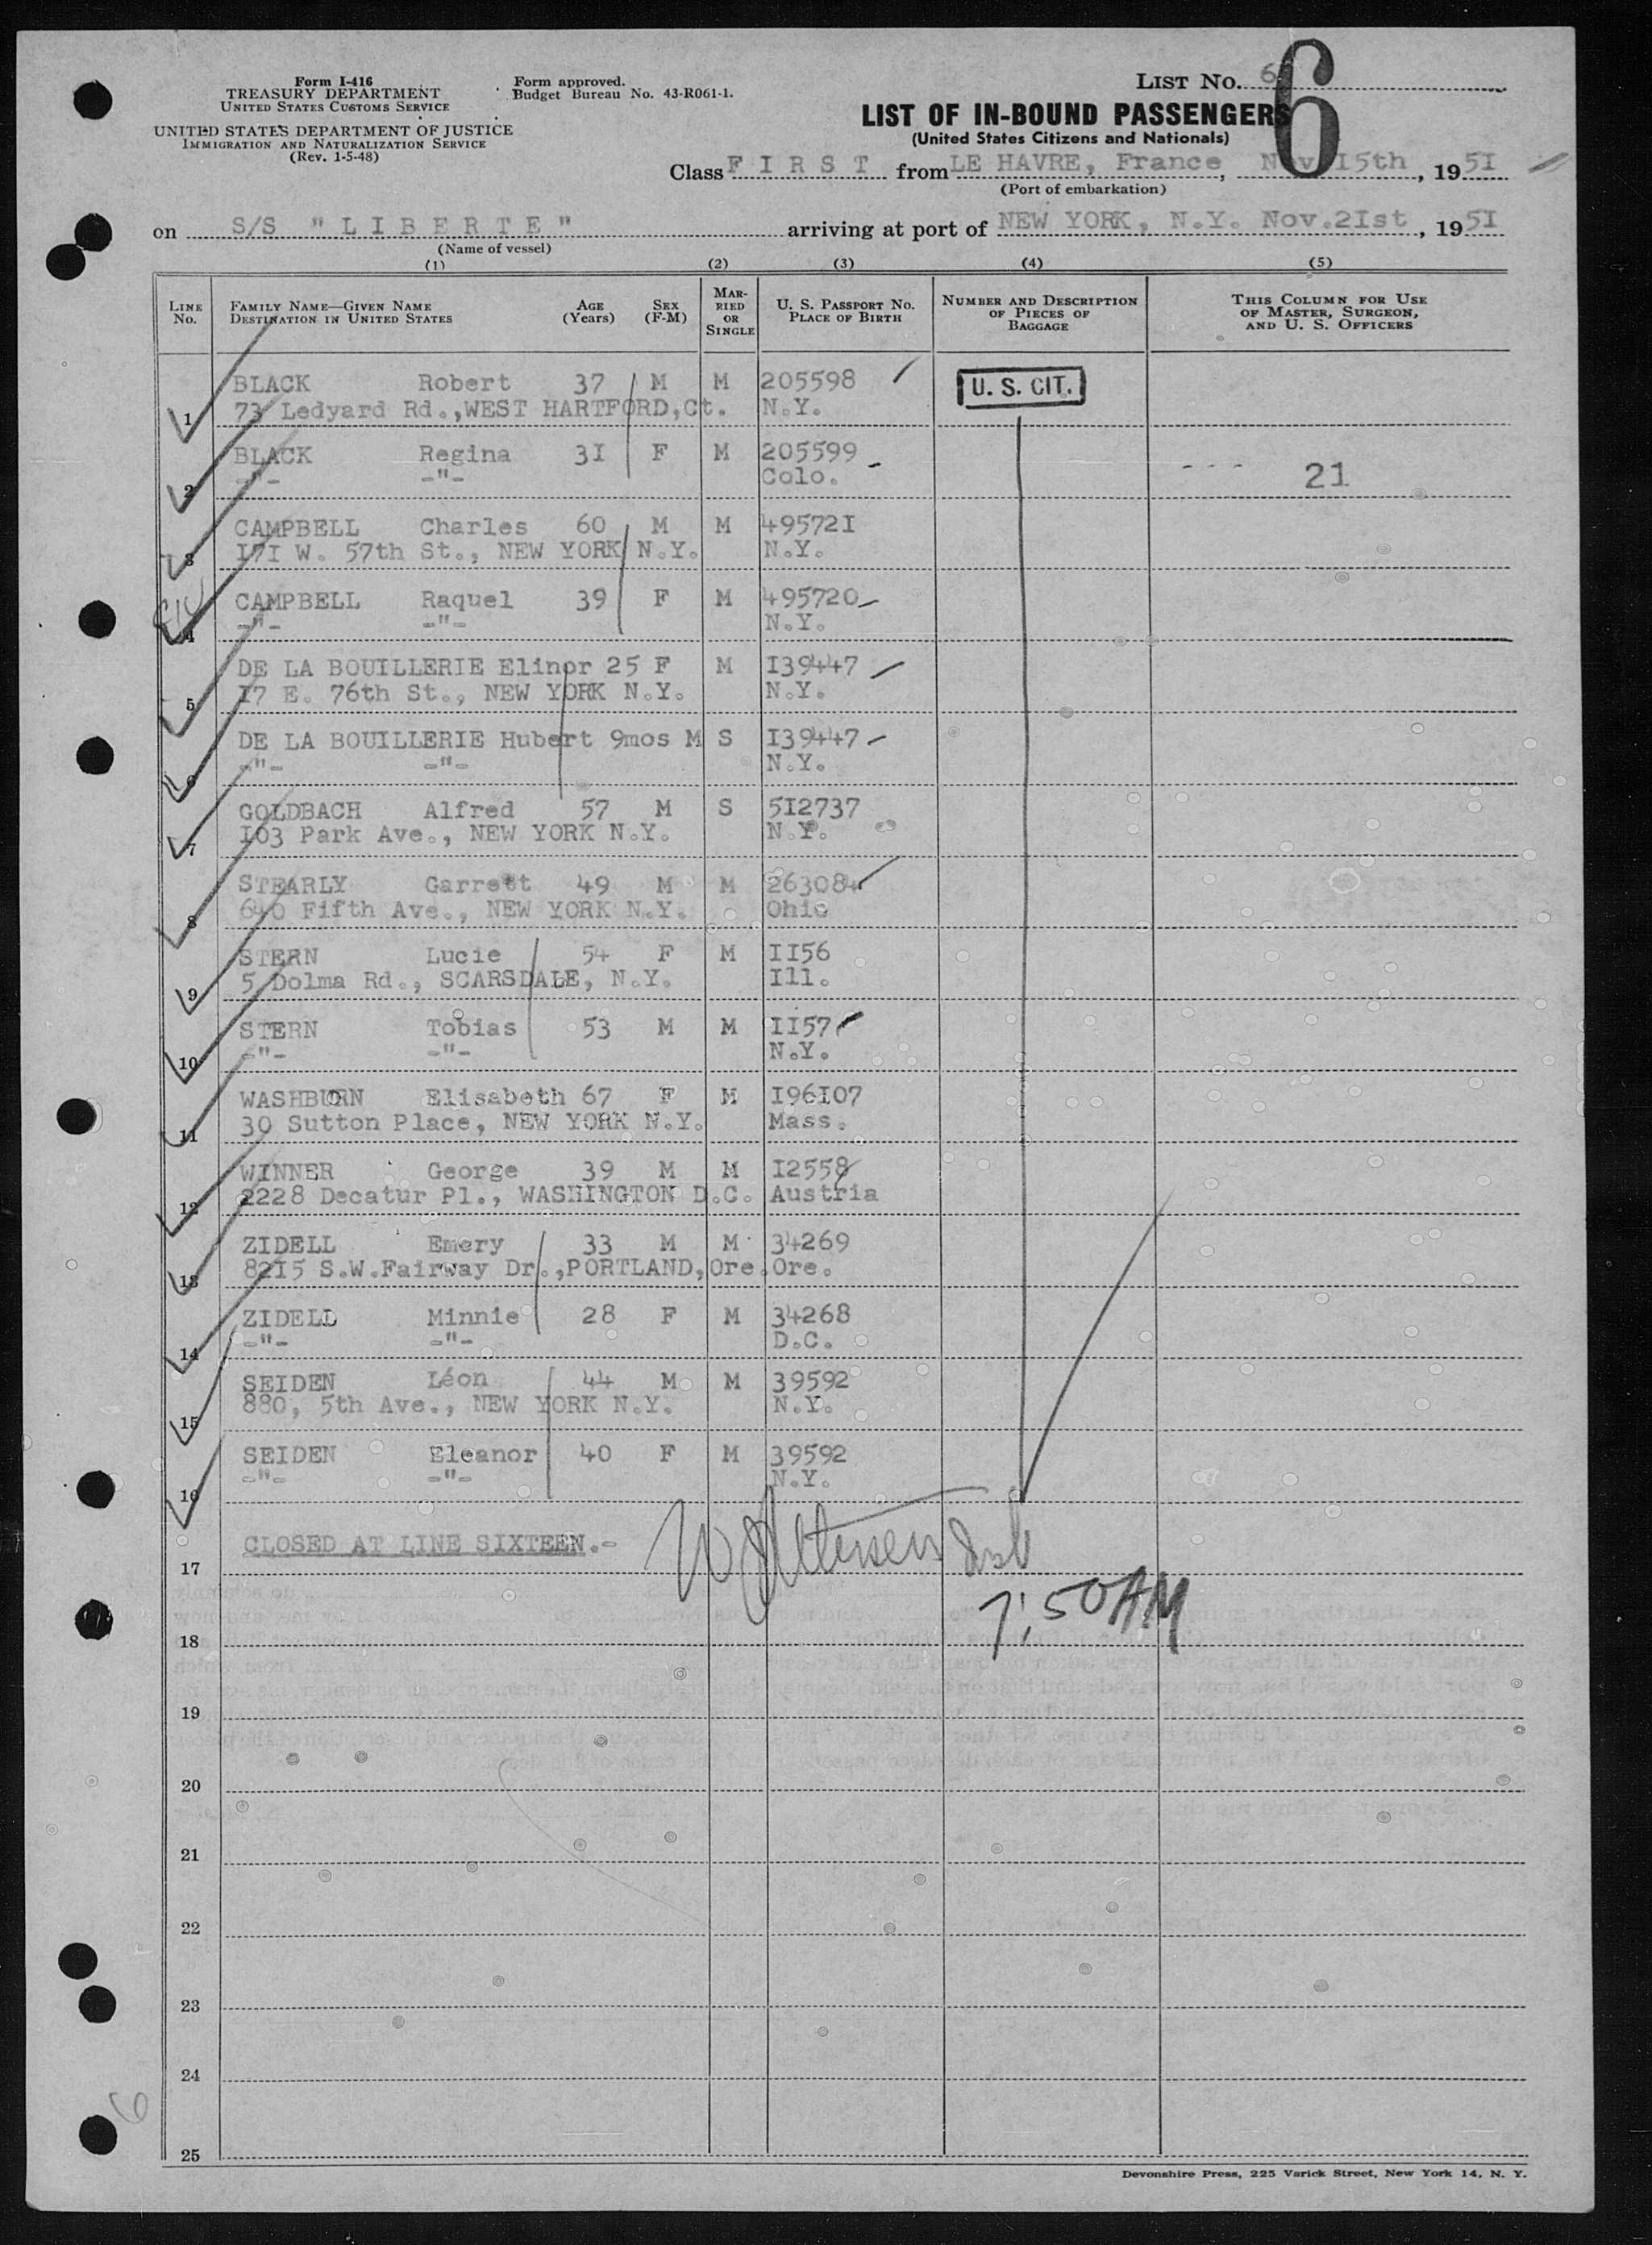 Form I-416
TREASURY DEPARTMENT
UNITED STATES CUSTOMS SERVICE
UNITED STATES DEPARTMENT OF JUSTICE
IMMIGRATION AND NATURALIZATION SERVICE
(Rev. 1-5-48)
Form approved.
Budget Bureau No. 43-R061-1.
LIST NO. 6
6
LIST OF IN-BOUND PASSENGERS
(United States Citizens and Nationals)
Class F I R S T from LE HAVRE, France, Nov 15th, 1951
(Port of embarkation)
on S/S "L I B E R T E" arriving at port of NEW YORK, N.Y. Nov.21st, 1951
(Name of vessel)
(1) (2) (3) (4) (5)
LINE NO. FAMILY NAME—GIVEN NAME DESTINATION IN UNITED STATES AGE (Years) SEX (F-M) MARRIED OR SINGLE U. S. PASSPORT NO. PLACE OF BIRTH NUMBER AND DESCRIPTION OF PIECES OF BAGGAGE THIS COLUMN FOR USE OF MASTER, SURGEON, AND U. S. OFFICERS
BLACK Robert 37 M M 205598 U. S. CIT.
1 73 Ledyard Rd.,WEST HARTFORD,Ct. N.Y.
BLACK Regina 31 F M 205599
2 -"- -"- Colo. --- 21
CAMPBELL Charles 60 M M 495721
3 171 W. 57th St., NEW YORK N.Y. N.Y.
CAMPBELL Raquel 39 F M 495720
4 -"- -"- N.Y.
DE LA BOUILLERIE Elinor 25 F M 139447
5 17 E. 76th St., NEW YORK N.Y. N.Y.
DE LA BOUILLERIE Hubert 9mos M S 139447
6 -"- -"- N.Y.
GOLDBACH Alfred 57 M S 512737
7 103 Park Ave., NEW YORK N.Y. N.Y.
STEARLY Garrett 49 M M 263084
8 640 Fifth Ave., NEW YORK N.Y. Ohio
STERN Lucie 54 F M 1156
9 5 Dolma Rd., SCARSDALE, N.Y. Ill.
STERN Tobias 53 M M 1157
10 -"- -"- N.Y.
WASHBURN Elisabeth 67 F M 196107
11 30 Sutton Place, NEW YORK N.Y. Mass.
WINNER George 39 M M 12558
12 2228 Decatur Pl., WASHINGTON D.C. Austria
ZIDELL Emery 33 M M 34269
13 8215 S.W.Fairway Dr.,PORTLAND,Ore. Ore.
ZIDELL Minnie 28 F M 34268
14 -"- -"- D.C.
SEIDEN Léon 44 M M 39592
15 880, 5th Ave., NEW YORK N.Y. N.Y.
SEIDEN Eleanor 40 F M 39592
16 -"- -"- N.Y.
CLOSED AT LINE SIXTEEN.-
17
7:50AM
18
19
20
21
22
23
24
6
25
Devonshire Press, 225 Varick Street, New York 14, N. Y.